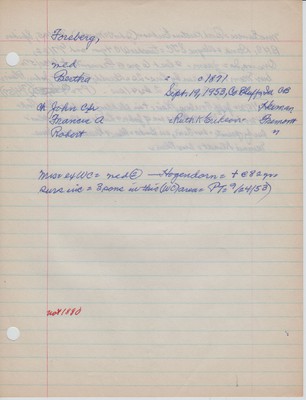 Forsberg,
med
Bertha = 01871
Sept. 19, 1953, Co Bluffs, Ia. OB
Ch John Cpr.
Francis A = Ruth K Gibson = Fremont
Robert "
Mrs = ex WC = med @ — Hogendorn = + @ 82 yrs
surs inc = 3 sons in this (WC) area = PT = 9/24/53)
not 1880